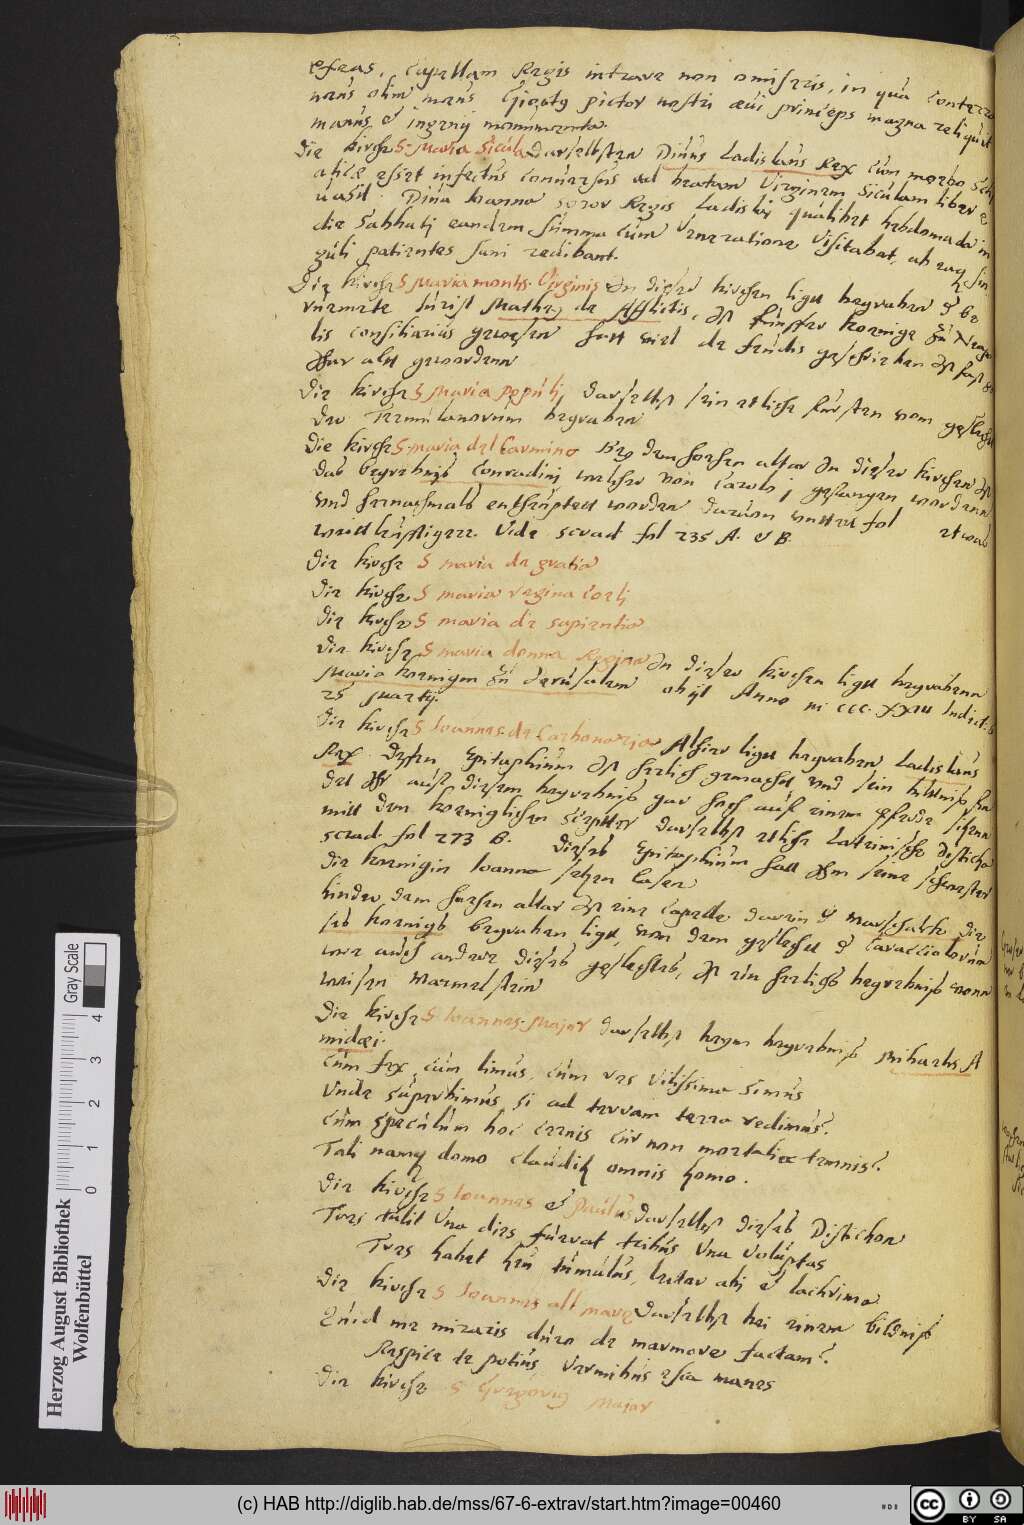 efeas. Capellam Regis intrare non omiseris, in qua conterra
neus olim meus Giootg pictor nostri aeui princeps magna reliquit
manus & ingenij monumenta.
Die kirche S. Maria Sicula daselbsten Diuus Ladislaus Rex cum morbo
aticae esset infectus conuersus ad beatam Virginem Siculam liber e
uasit. Diua Joanna soror Regis Ladislaj qualibet hebdomada in
die Sabbatj eandem summa cum veneratione visitabat, ab eaq
guli patientes sani redibant.
Die kirche S Maria montis Virginis In dieser kirchen ligtt begraben d be
ruemete Jurist Mathej de Afflictis, Ist fünffer koenige zu Neapo
lis consiliarius gewesen hatt viel de feudis geschrieben Ist fast 80
Jhar altt gewordenn
Die kirche S Maria populj, daselbst sein etliche fürsten vom geschlecht
der Remulanorum begraben
Die kirche S. maria del Carmino Bey dem hohen altar In dieser kirchen Ist
das begrebnis Conradini, welcher von Carolo j gefangen wordenn
vnd hernachmals entheuptett worden daruon vnttet fol etwas
weittleufftigere. Vide scrad fol 235 A. & B.
Die kirche S maria de gratia
Die kirche S maria regina coelj
Die kirche S maria de sapientia
Die kirche S maria donna Regina In dieser kirchen ligtt begrabenn
Maria koenigin zu Jerusalem obijt Anno m ccc. XXIII Indict. 6
25 Martij.
Die kirche S Joannes de Carbonaria Alhier ligtt begraben Ladislaus
Rex. Dessen Epitaphium Ist herlich gemachtt vnd sein biltnis
det Ihr auff diesem begrebnis gar hoch auff einem pferde sitzenn
mitt dem koeniglichen Scepter daselbst etliche Lateinische disticha
scrad. fol 273 B. Dieses Epitaphium hatt Ihm seine schwester
die koenigin Joanna setzen lasen
hinder dem hohen altar Ist eine Capelle darin d Marschalck die
ses koenigs begraben ligtt, von dem geschlecht d Caracciolorum
wie auch andere dieses geschlechts, Ist ein herlichs begrebnis vonn
weisen Marmelstein
Die kirche S Joannes Major daselbst beym begrebnis Micharlis A
midaei.
Cum fex, cum limus, cum res vilissima simus
Vnde superbimus, si ad terram terra redimus.
Cum speculum hoc cernis cur non mortalia temnis?
Tali namq domo clauditur omnis homo.
Die kirche S Joannes & Paulus daselbst dieses Distichon
Tres tulit vna dies fuerat tribus vna voluptas
Tres habet hic tumulus, luctus abi & lachrima
Die kirche S Joannis all mare daselbst bei einem bildnis
Quid me miraris duro de marmore factam?
Respice te potius, vermibus esca manes
Die kirche S Gregorius
Major
Herzog August Bibliothek
Wolfenbüttel
0 1 2 3 4
Gray Scale
(c) HAB http://diglib.hab.de/mss/67-6-extrav/start.htm?image=00460
HAB
cc BY SA